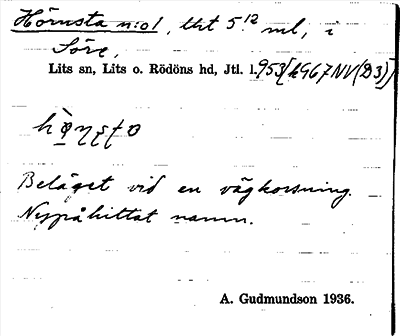 Hörnsta n:o 1, tht 5.12 ml, i
Söre,
Lits sn, Lits o. Rödöns hd, Jtl. l. 953 [k 967 NV (D3)]
Beläget vid en vägkorsning.
Nypåhittat namn.
A. Gudmundson 1936.